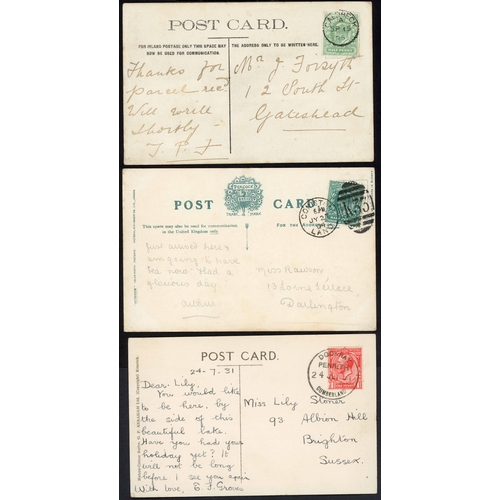 POST CARD.
FOR INLAND POSTAGE ONLY THIS SPACE MAY
NOW BE USED FOR COMMUNICATION.
THE ADDRESS ONLY TO BE WRITTEN HERE.
Thanks for
parcel recd
Will write
shortly –
J. P. F
Mr J. Forsyth
12 South St
Gateshead
POST CARD
PEACOCK
TRADE MARK
This space may also be used for communication
in the United Kingdom only.
FOR THE
Just arrived here &
am going to have
tea now Had a
glorious day!
Arthur
Miss Rawson
13 Lorne Terrace
Darlington
LAND
POST CARD.
24-7-31
Dear Lily,
You would like
to be here, by
the side of this
beautiful lake.
Have you had your
holiday yet? It
will not be long
before I see you again
With love, E J Groves
Miss Lily Stoner
93 Albion Hill
Brighton
Sussex.
PENRITH
CUMBERLAND